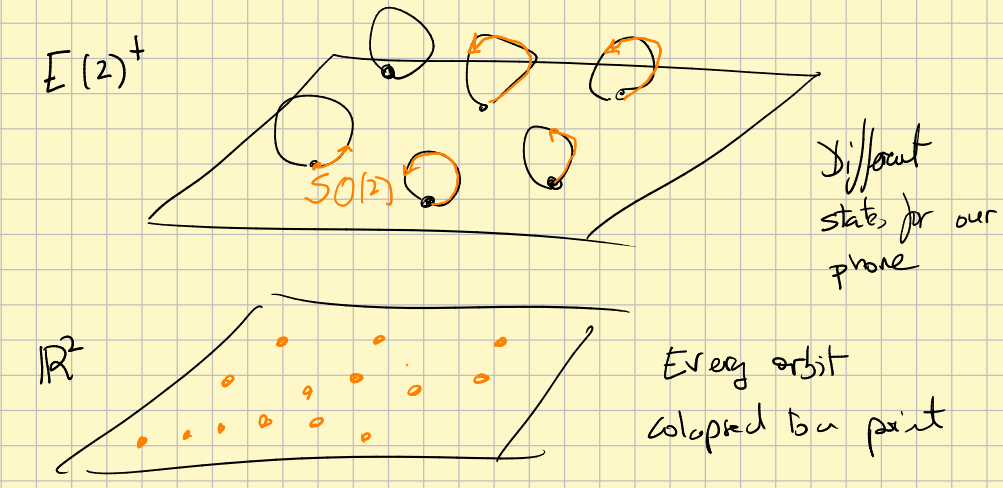 E(2)⁺
SO(2)
Different
states for our
phone
ℝ²
Every orbit
colapsed to a point